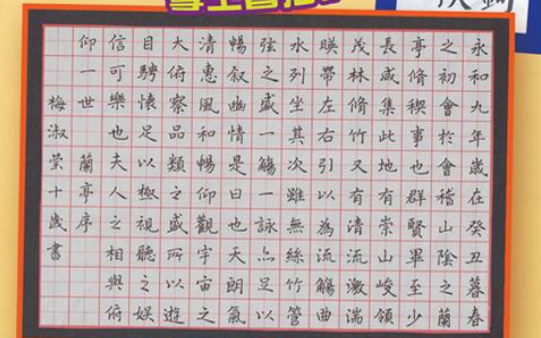 永和九年歲在癸丑暮春
之初會於會稽山陰之蘭
亭脩稧事也群賢畢至少
長咸集此地有崇山峻領
茂林脩竹又有清流激湍
暎帶左右引以為流觴曲
水列坐其次雖無絲竹管
弦之盛一觴一詠亦足以
暢叙幽情是日也天朗氣
清惠風和暢仰觀宇宙之
大俯察品類之盛所以遊
目騁懷足以極視聽之娛
信可樂也夫人之相與俯
仰一世 蘭亭序
梅淑瑩十歲書